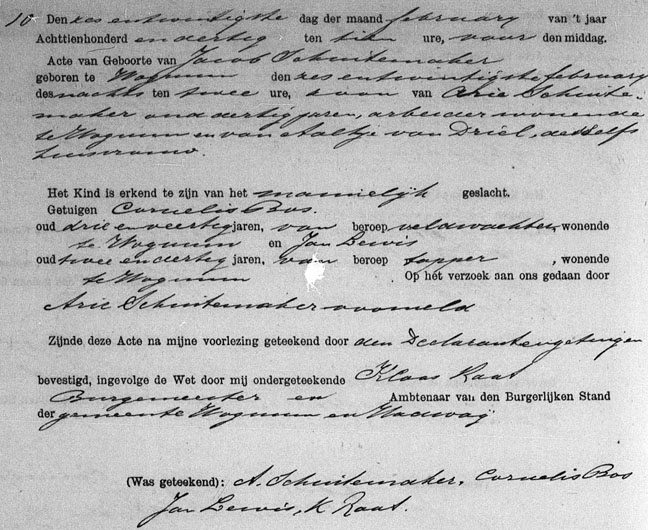 10 Den zes entwintigste dag der maand february van 't jaar
Achttienhonderd en dertig ten tien ure, voor den middag.
Acte van Geboorte van Jacob Schuitemaker
geboren te Wognum den zes entwintigste february
des nachts ten twee ure, zoon van Arie Schuite-
maker oud dertig jaren, arbeider wonende
te Wognum en van Aaltje van Driel, deszelfs
huisvrouw.
Het Kind is erkend te zijn van het mannelijk geslacht.
Getuigen Cornelis Bos.
oud drie en veertig jaren, van beroep veldwachter, wonende
te Wognum en Jan Lewis
oud twee en dertig jaren, van beroep tapper, wonende
te Wognum Op het verzoek aan ons gedaan door
Arie Schuitemaker voormeld
Zijnde deze Acte na mijne voorlezing geteekend door den Declarant en getuigen
bevestigd, ingevolge de Wet door mij ondergeteekende Klaas Raat
Burgemeester en Ambtenaar van den Burgerlijken Stand
der gemeente Wognum en Wadway
(Was geteekend): A. Schuitemaker, Cornelis Bos
Jan Lewis, K Raat.